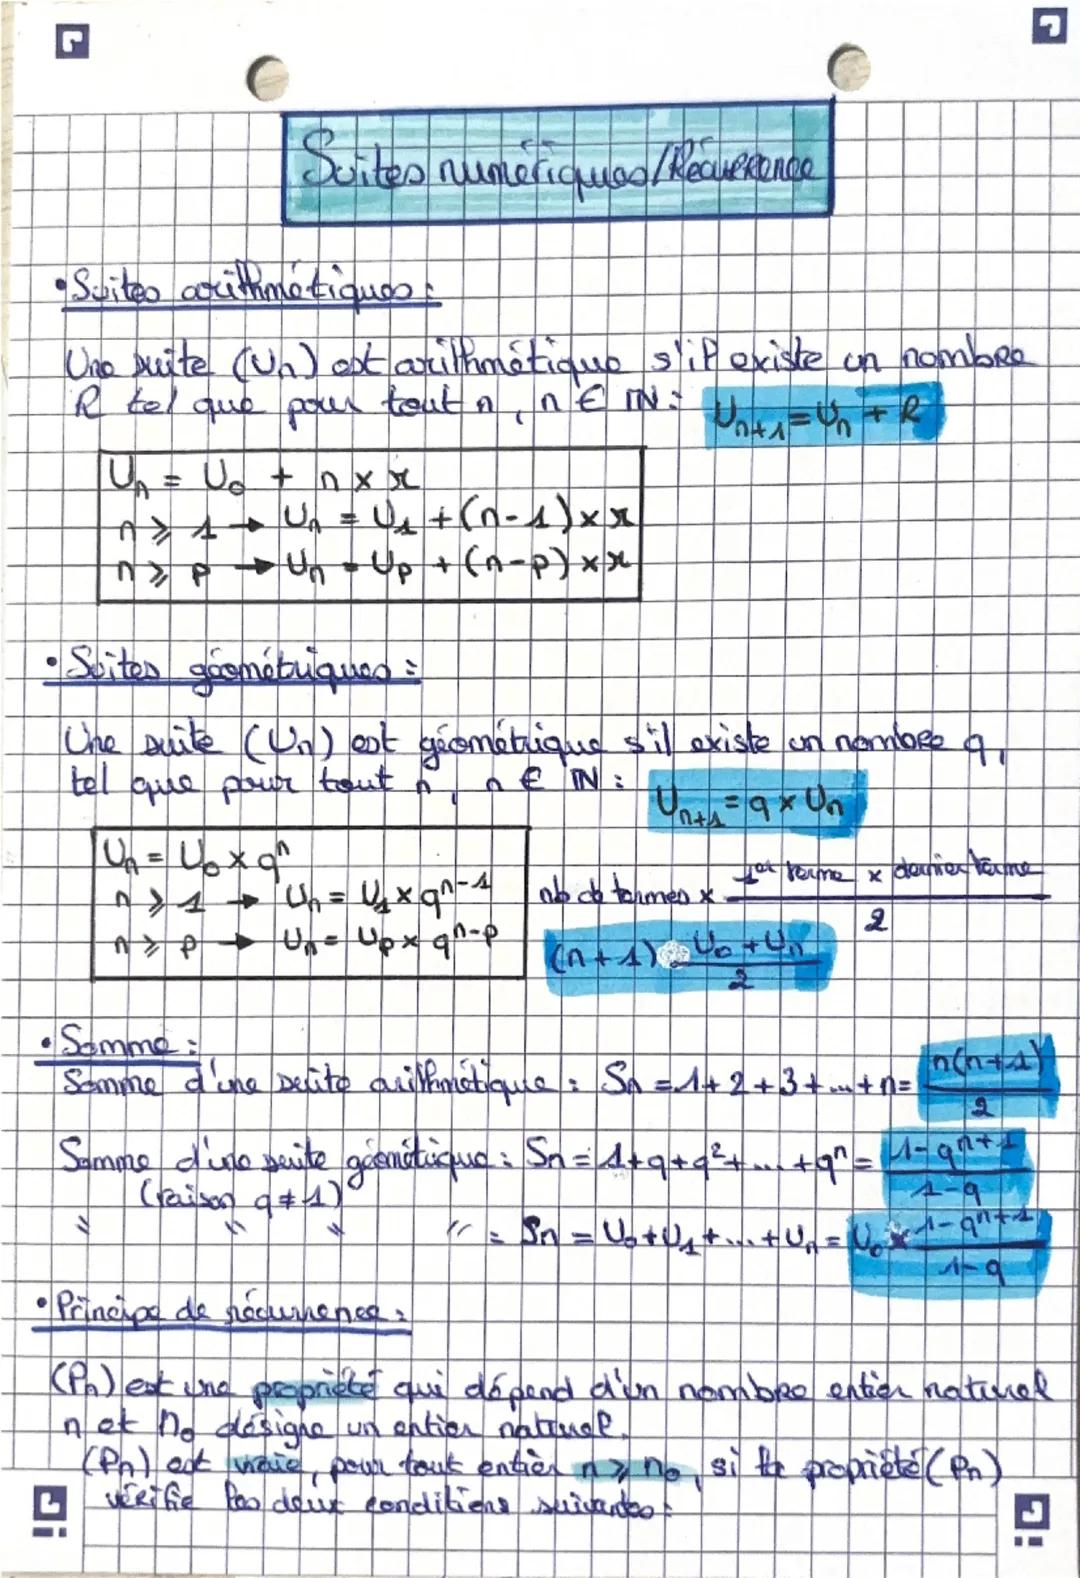 Suites numériques/Récurrence
• Suites arithmétiques :
Une suite (Un) est arithmétique s'il existe un nombre
R tel que pour tout n, n ∈ IN : Un+1 = Un + R
Un = U0 + n × r
n ⩾ 1 → Un = U1 + (n-1) × r
n ⩾ p → Un = Up + (n-p) × r
• Suites géométriques :
Une suite (Un) est géométrique s'il existe un nombre q,
tel que pour tout n, n ∈ IN : Un+1 = q × Un
Un = U0 × q^n
n ⩾ 1 → Un = U1 × q^n-1
n ⩾ p → Un = Up × q^n-p
nb de termes × 1er terme × dernier terme
2
(n+1) U0 + Un
2
• Somme :
Somme d'une suite arithmétique : Sn = 1+2+3+...+n = n(n+1)
2
Somme d'une suite géométrique : Sn = 1+q+q²+...+q^n = 1-q^n+1
(raison q ≠ 1) 1-q
" " " " = Sn = U0+U1+...+Un = U0 × 1-q^n+1
1-q
• Principe de récurrence :
(Pn) est une propriété qui dépend d'un nombre entier naturel
n et n0 désigne un entier naturel.
(Pn) est vraie, pour tout entier n ⩾ n0, si la propriété (Pn)
vérifie les deux conditions suivantes :